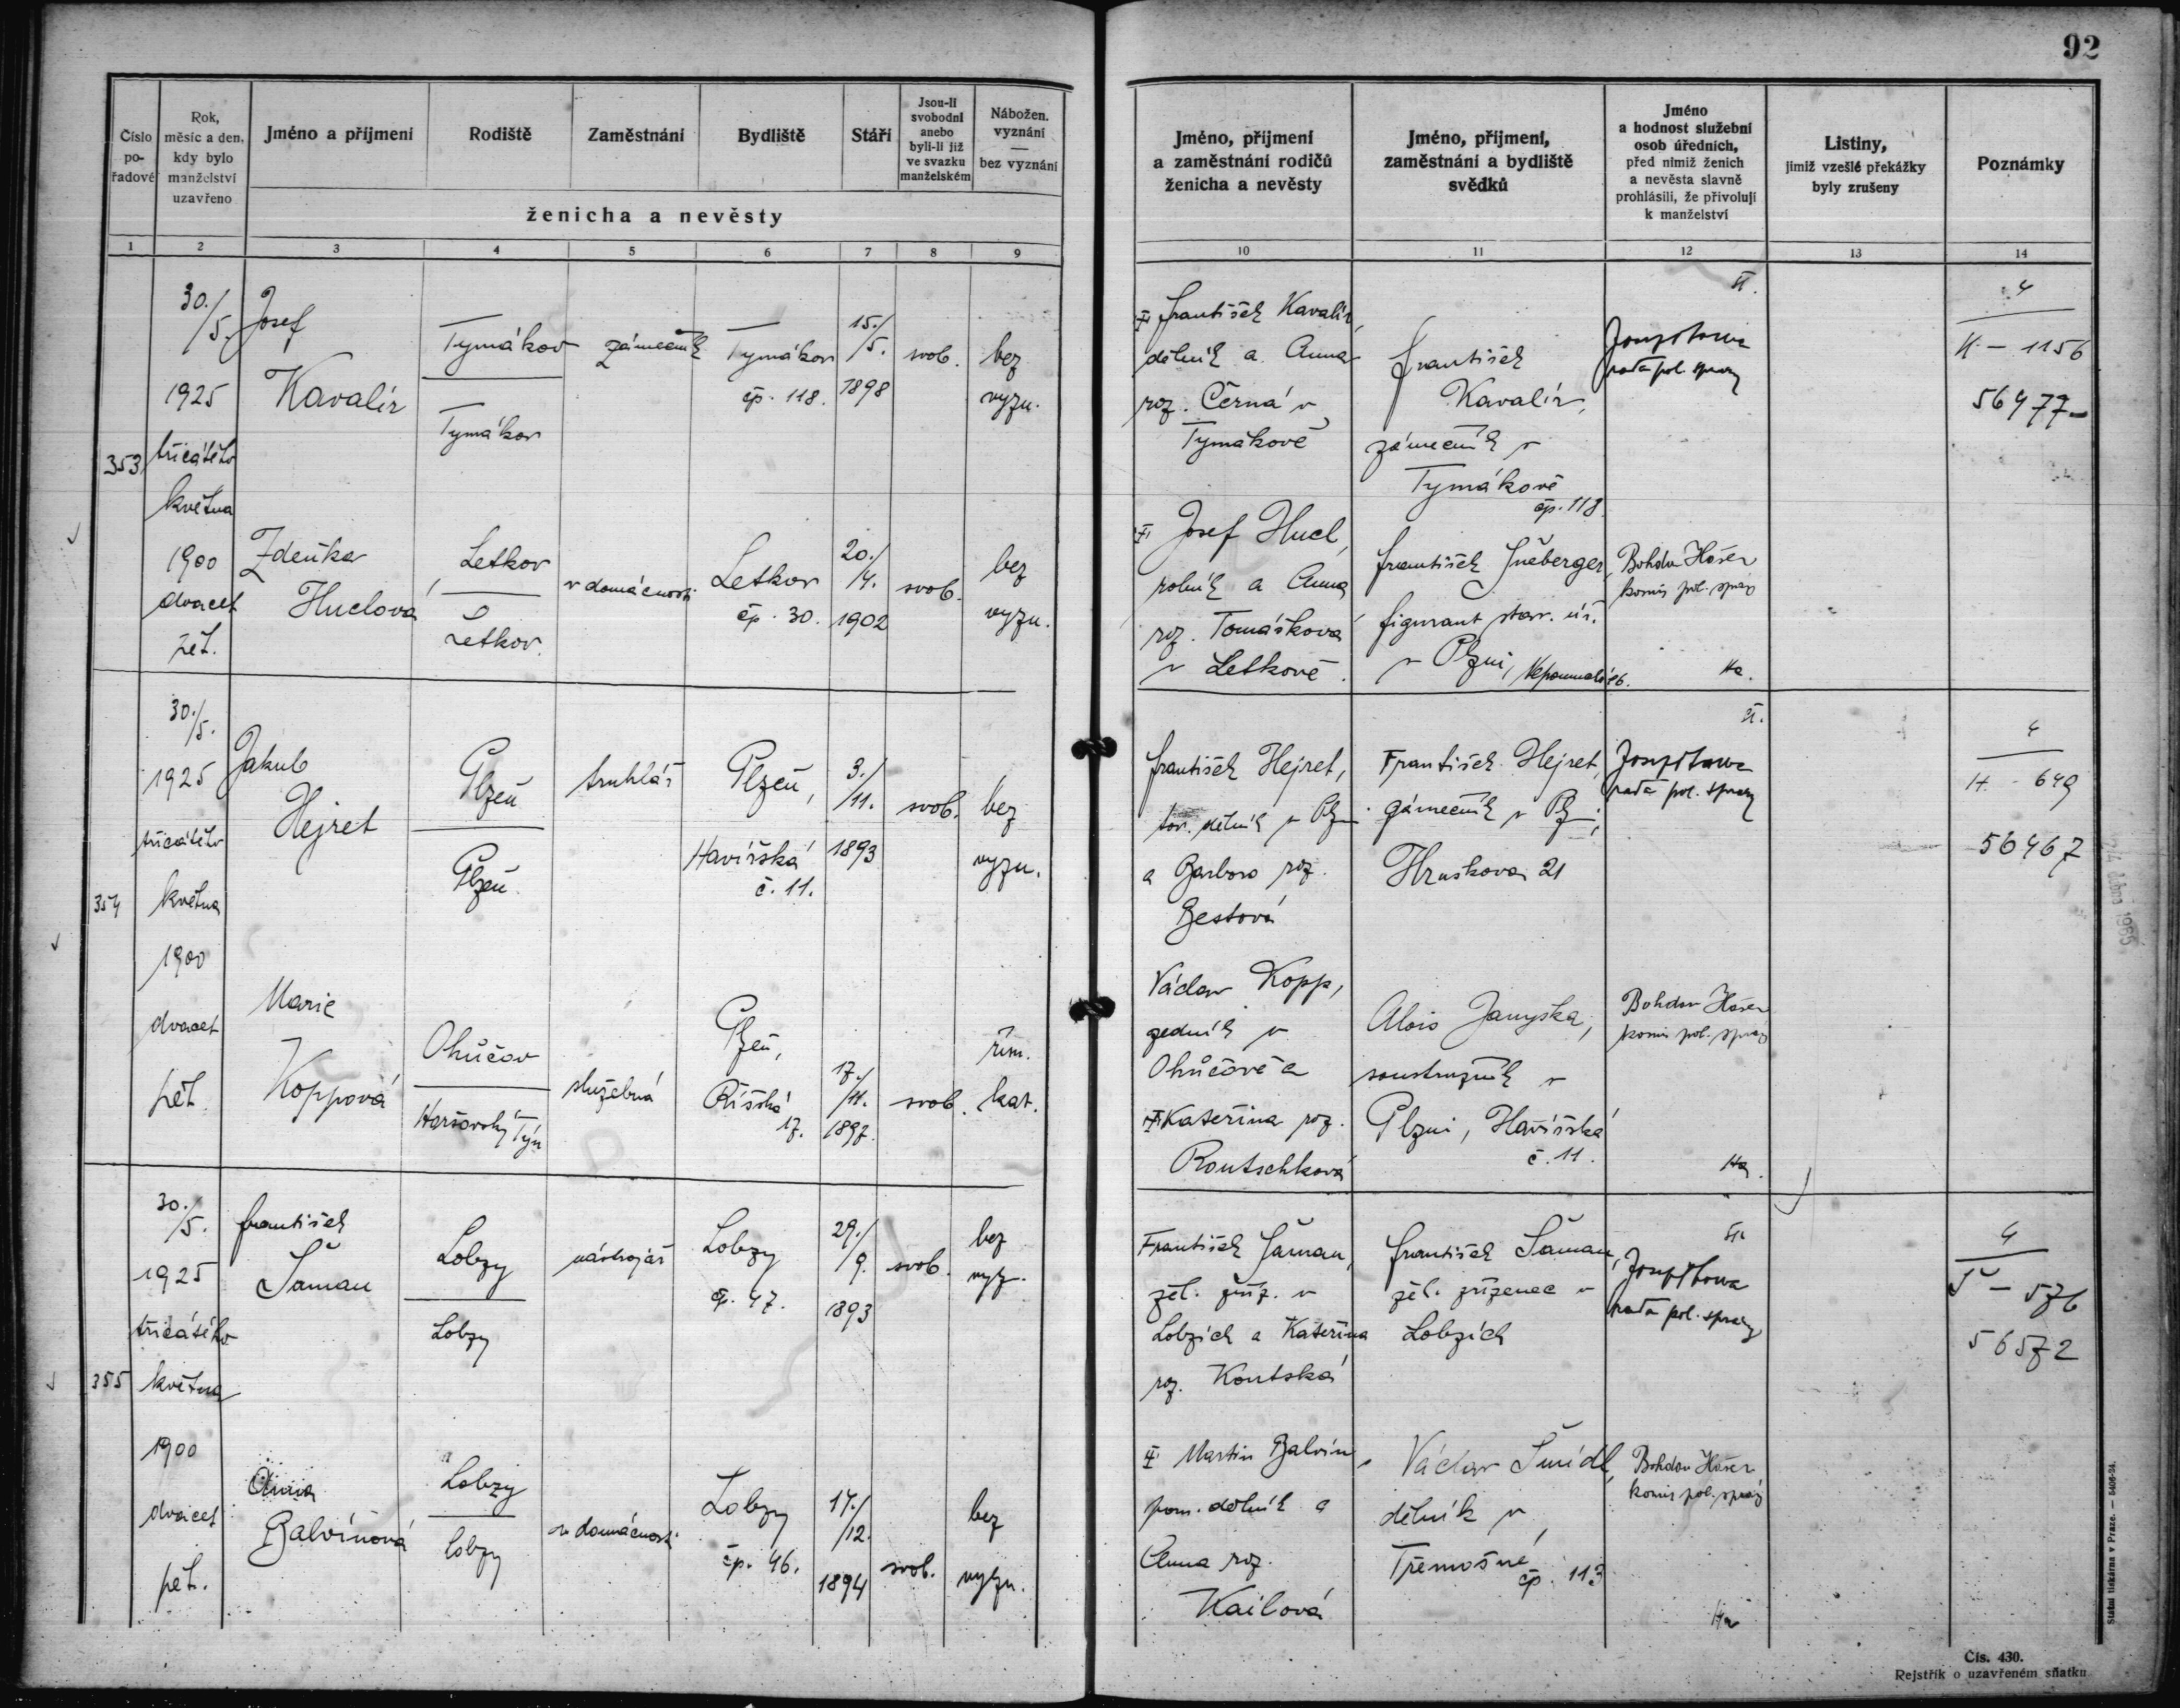 92
Číslo pořadové
Rok, měsíc a den, kdy bylo manželství uzavřeno
Jméno a příjmení
Rodiště
Zaměstnání
Bydliště
Stáří
Jsou-li svobodni anebo byli-li již ve svazku manželském
Nábožen. vyznání — bez vyznání
ženicha a nevěsty
1 2 3 4 5 6 7 8 9
Jméno, příjmení a zaměstnání rodičů ženicha a nevěsty
Jméno, příjmení, zaměstnání a bydliště svědků
Jméno a hodnost služební osob úředních, před nimiž ženich a nevěsta slavně prohlásili, že přivolují k manželství
Listiny, jimiž vzešlé překážky byly zrušeny
Poznámky
10 11 12 13 14
353
30./5.
1925
třicátého
května
1900
dvacet
pět.
Josef
Kavalír
Tymákov
Tymákov
zámečník
Tymákov
čp. 118.
15./5.
1898
svob.
bez
vyzn.
František Kavalír,
dělník a Anna
roz. Černá v
Tymákově
František
Kavalír,
zámečník v
Tymákově
čp. 118.
rada pol. správy
4
K - 1156
56477
Zdeňka
Huclová
Letkov
Letkov.
v domácnosti
Letkov
čp. 30.
20./4.
1902
svob.
bez
vyzn.
Josef Hucl,
rolník a Anna
roz. Tomášková
v Letkově.
František Šneberger,
figurant stav. úř.
v Plzni,
Bohdan
komis pol. správy
354
30./5.
1925
třicátého
května
1900
dvacet
pět.
Jakub
Hejret
Plzeň
Plzeň
truhlář
Plzeň,
Havířská
č. 11.
3./11.
1893
svob.
bez
vyzn.
František Hejret,
tov. dělník v Plzni
a Barbora roz.
Bestová
František Hejret,
zámečník v Plzni,
Hruškova 21
rada pol. správy
4
H - 649
56467
Marie
Koppová
Ohučov
Horšovský Týn
služebná
Plzeň,
Říšská
17.
17./11.
1897.
svob.
řím.
kat.
Václav Kopp,
zedník v
Ohučově a
Kateřina roz.
Routschková
Alois Janyška,
soustružník v
Plzni, Havířská
č. 11.
Bohdan
komis pol. správy
355
30./5.
1925
třicátého
května
1900
dvacet
pět.
František
Šaman
Lobzy
Lobzy
nástrojař
Lobzy
čp. 47.
29./9.
1893
svob.
bez
vyz.
František Šaman,
žel. zříz. v
Lobzích a Kateřina
roz. Koutská
František Šaman,
žel. zřízenec v
Lobzích
rada pol. správy
4
Š - 576
56572
Anna
Balvínová
Lobzy
Lobzy
v domácnosti
Lobzy
čp. 46.
17./12.
1894
svob.
bez
vyzn.
Martin Balvín,
pom. dělník a
Anna roz.
Kailová
Václav Šmídl,
dělník v
Třemošné,
čp. 113
Bohdan
komis pol. správy
Státní tiskárna v Praze. — 5406-24.
Čís. 430.
Rejstřík o uzavřeném sňatku.